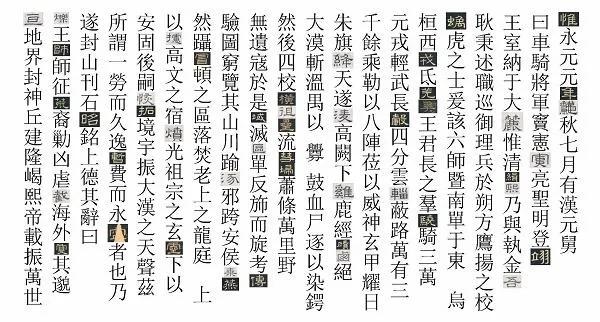 惟永元元年秋七月有漢元舅
曰車騎將軍竇憲寅亮聖明登翊
王室納于大麓惟清緝熙乃與執金吾
耿秉述職巡御理兵於朔方鷹揚之校
螭虎之士爰該六師暨南單于東 烏
桓西戎氐羌侯王君長之羣驍騎三萬
元戎輕武長轂四分雲輜蔽路萬有三
千餘乘勒以八陣莅以威神玄甲耀日
朱旗絳天遂淩高闕下雞鹿經磧鹵絕
大漠斬溫禺以 釁 鼓血尸逐以染鍔
然後四校橫徂星流彗掃蕭條萬里野
無遺寇於是域滅區單反斾而旋考傳
驗圖窮覽其山川踰涿邪跨安侯乘燕
然躡冒頓之區落焚老上之龍庭 上
以攄高文之宿憤光祖宗之玄靈下以
安固後嗣恢拓境宇振大漢之天聲茲
所謂一勞而久逸暫費而永寧者也乃
遂封山刊石昭銘上德其辭曰
鑠王師征荒裔勦凶虐截海外夐其邈
亘地界封神丘建隆嵑熙帝載振萬世